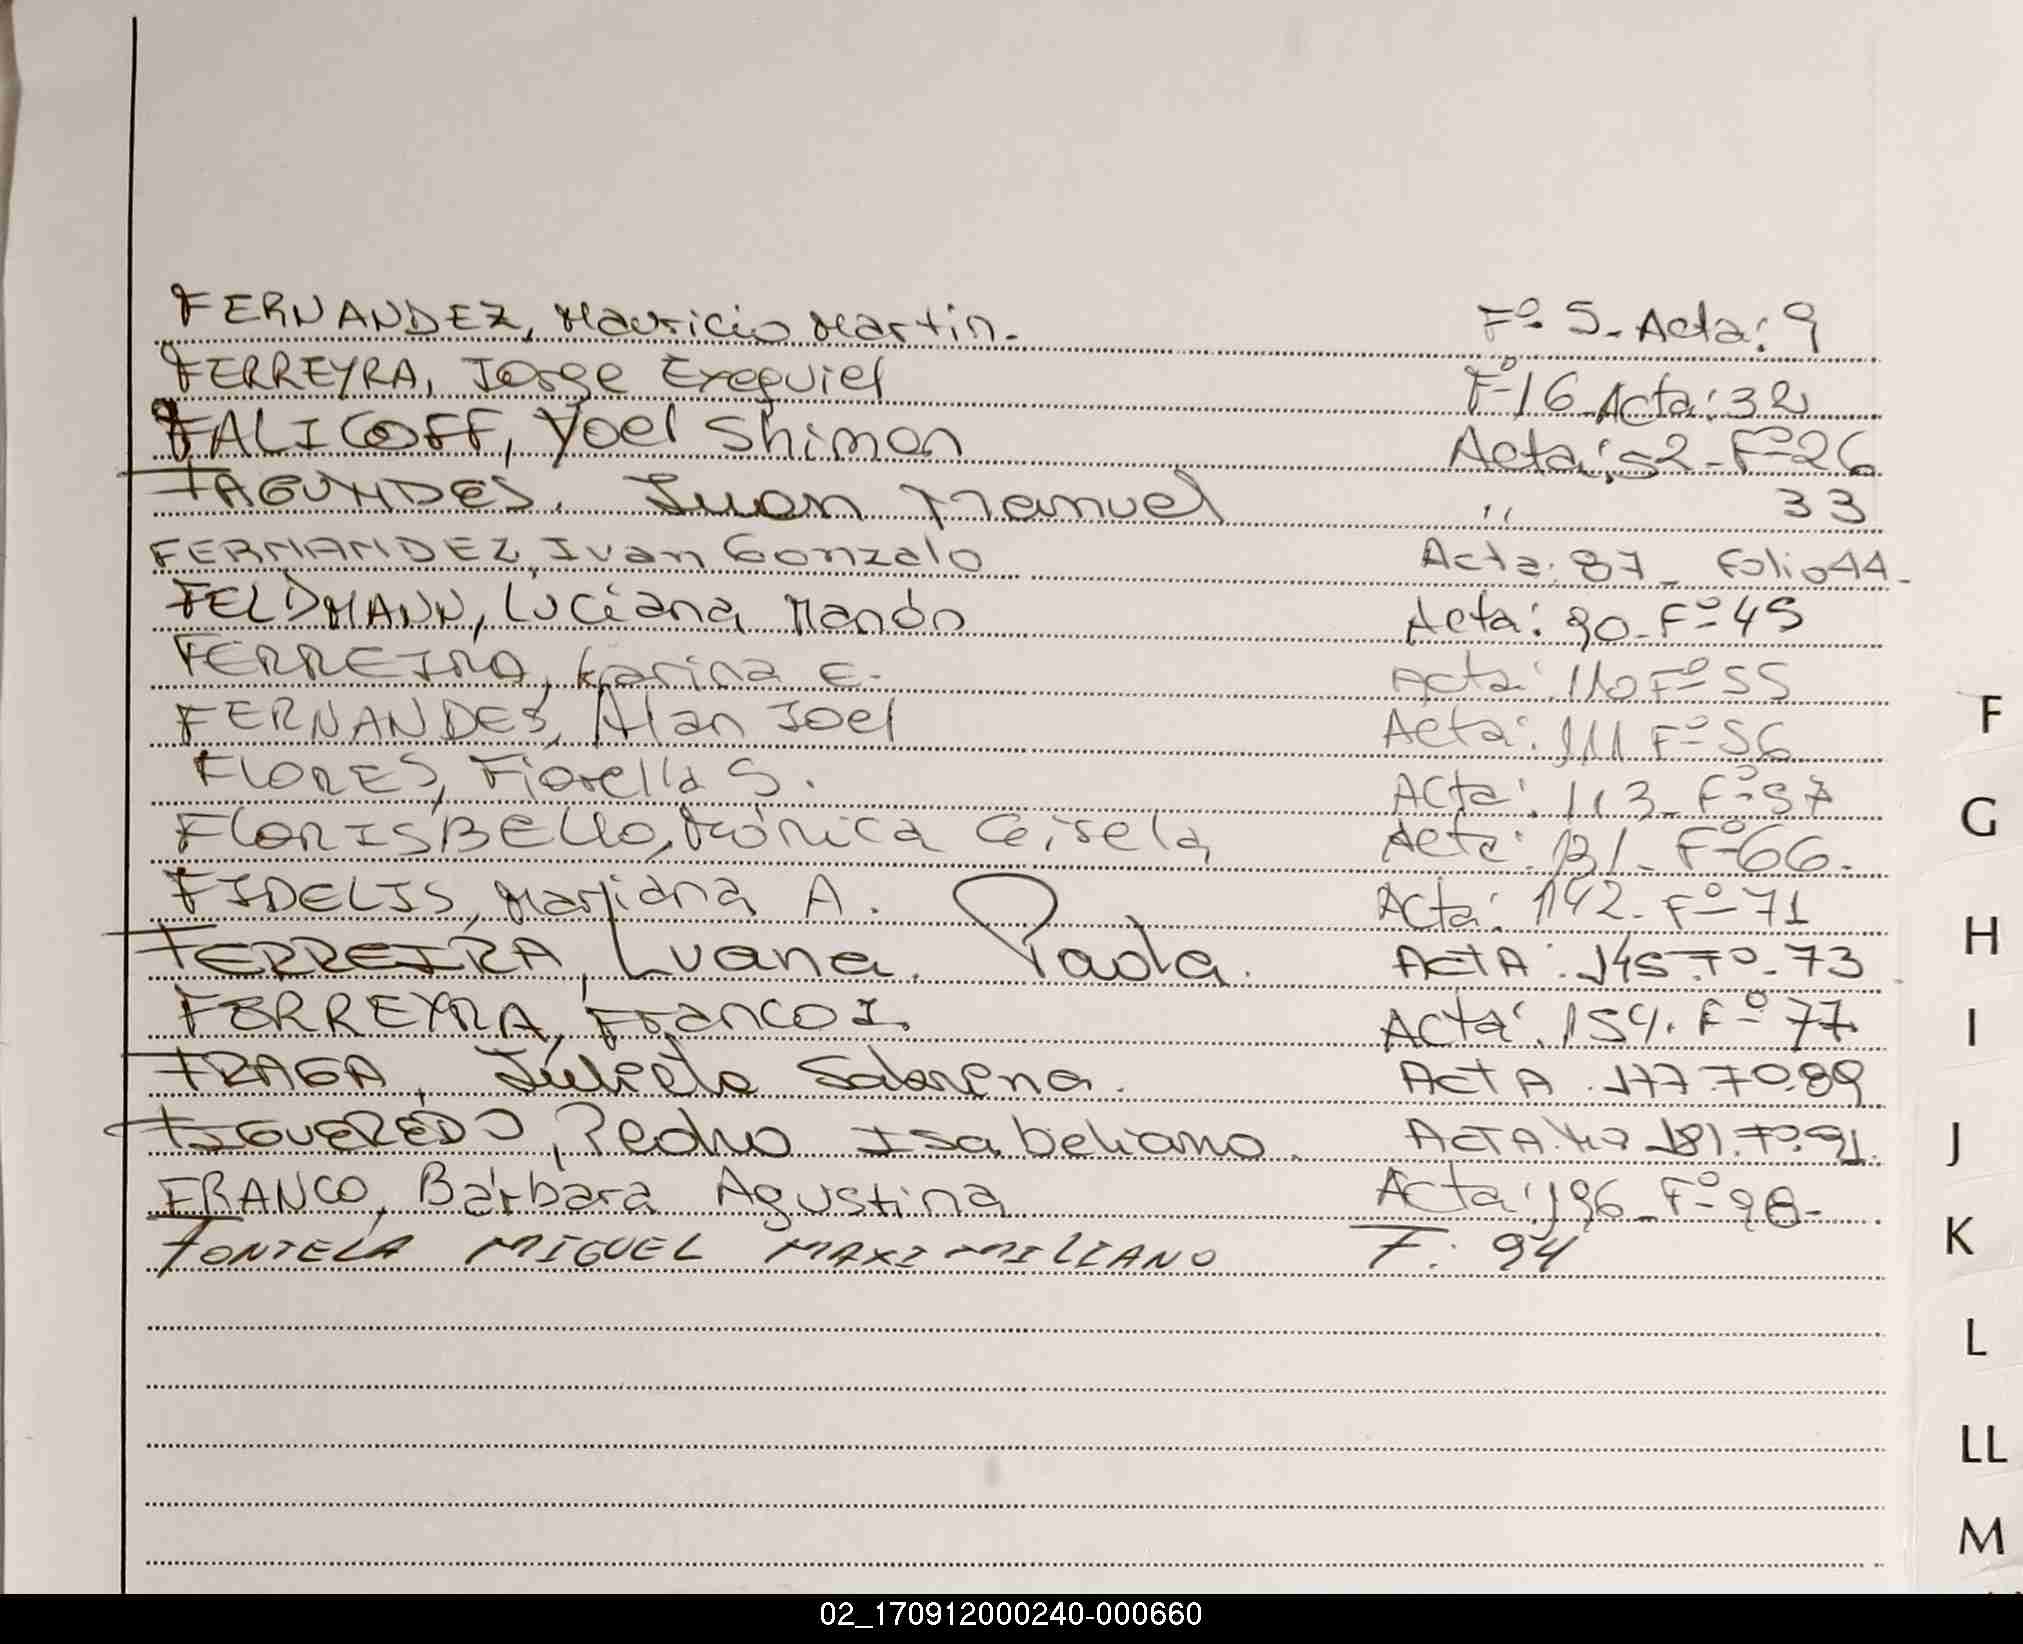 FERNANDEZ, Mauricio Martin. Fº- 5- Acta: 9
FERREYRA, Jorge Exequiel Fº-16 Acta: 32
FALICOFF, Yoel Shimon Acta: 52-Fº 26
FAGUNDES. Juan Manuel " 33
FERNANDEZ, Ivan Gonzalo Acta. 87 - Folio 44-
FELDMANN, Luciana Acta: 90-Fº 45
FERREIRA, Karina E. Acta: 110 Fº 55
FERNANDES, Alan Joel Acta: 111 Fº 56
FLORES, Fiorella S. Acta: 113- Fº 57
FLORISBELLO, Mónica Geisela Acta: 131- Fº 66.
FIDELIS, Mariana A. Acta: 142- Fº 71
FERREIRA, Luana. Paola. ActA: 145-Fº-73
FERREYRA, Franco I. Acta: 154. Fº 77.
FRAGA, Julieta Sabrina. ActA. 177 Fº.89
FIGUEREDO, Pedro Isabeliano. ACTA Nº 181. Fº.91.
FRANCO, Bárbara Agustina Acta: 196-Fº 98-
FONTELA MIGUEL MAXIMILIANO F. 94
F
G
H
I
J
K
L
LL
M
02_170912000240-000660